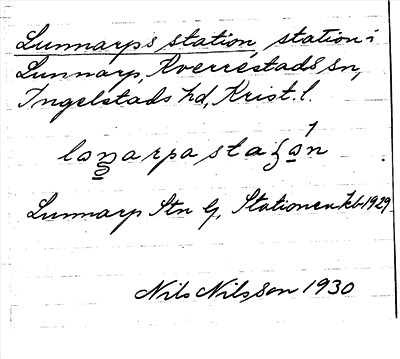 Lunnarps station, station i
Lunnarp, Kverrestads sn,
Ingelstads hd, Krist. l.
Lunnarp Stn lj, Stationen kb 1929
Nils Nilsson 1930